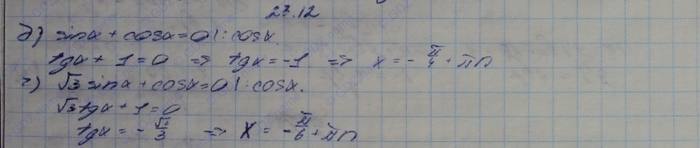 27.12
д) sinx + cosx = 0 |: cosx
tgx + 1 = 0 => tgx = -1 => x = -π/4 + πn
г) √3 sinx + cosx = 0 |: cosx.
√3 tgx + 1 = 0
tgx = -√3/3 => x = -π/6 + πn